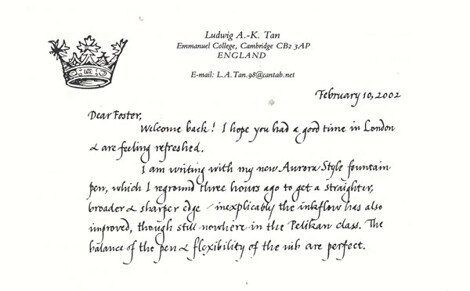 Ludwig A.-K. Tan
Emmanuel College, Cambridge CB2 3AP
ENGLAND
E-mail: L.A.Tan.98@cantab.net
February 10, 2002
Dear Foster,
Welcome back! I hope you had a good time in London
& are feeling refreshed.
I am writing with my new Aurora Style fountain
pen, which I reground three hours ago to get a straighter,
broader & sharper edge – inexplicably the inkflow has also
improved, though still nowhere in the Pelikan class. The
balance of the pen & flexibility of the nib are perfect.